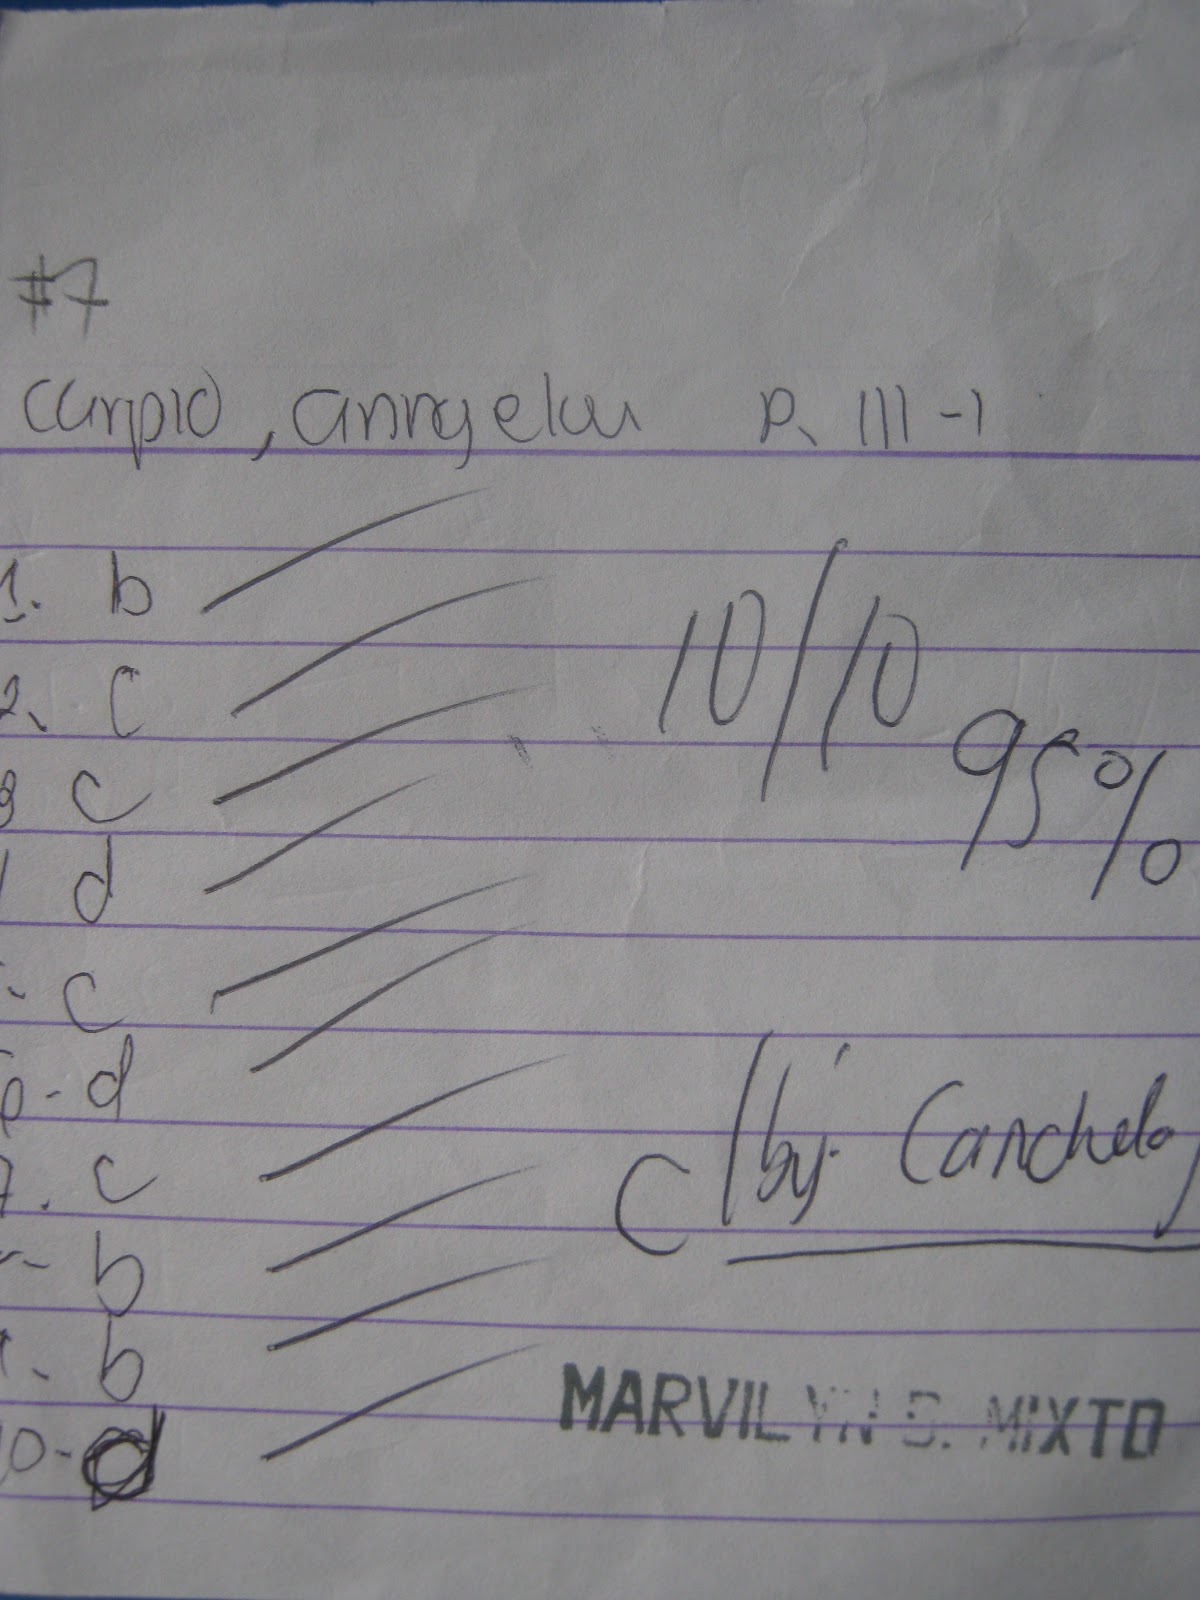 #7
Carpio, anngelou R. III-1
1. b
2. c
3 c
d
- c
6-d
7. c
- b
- b
10-d
10/10
95%
C/by: Canchela
MARVILYN D. MIXTO